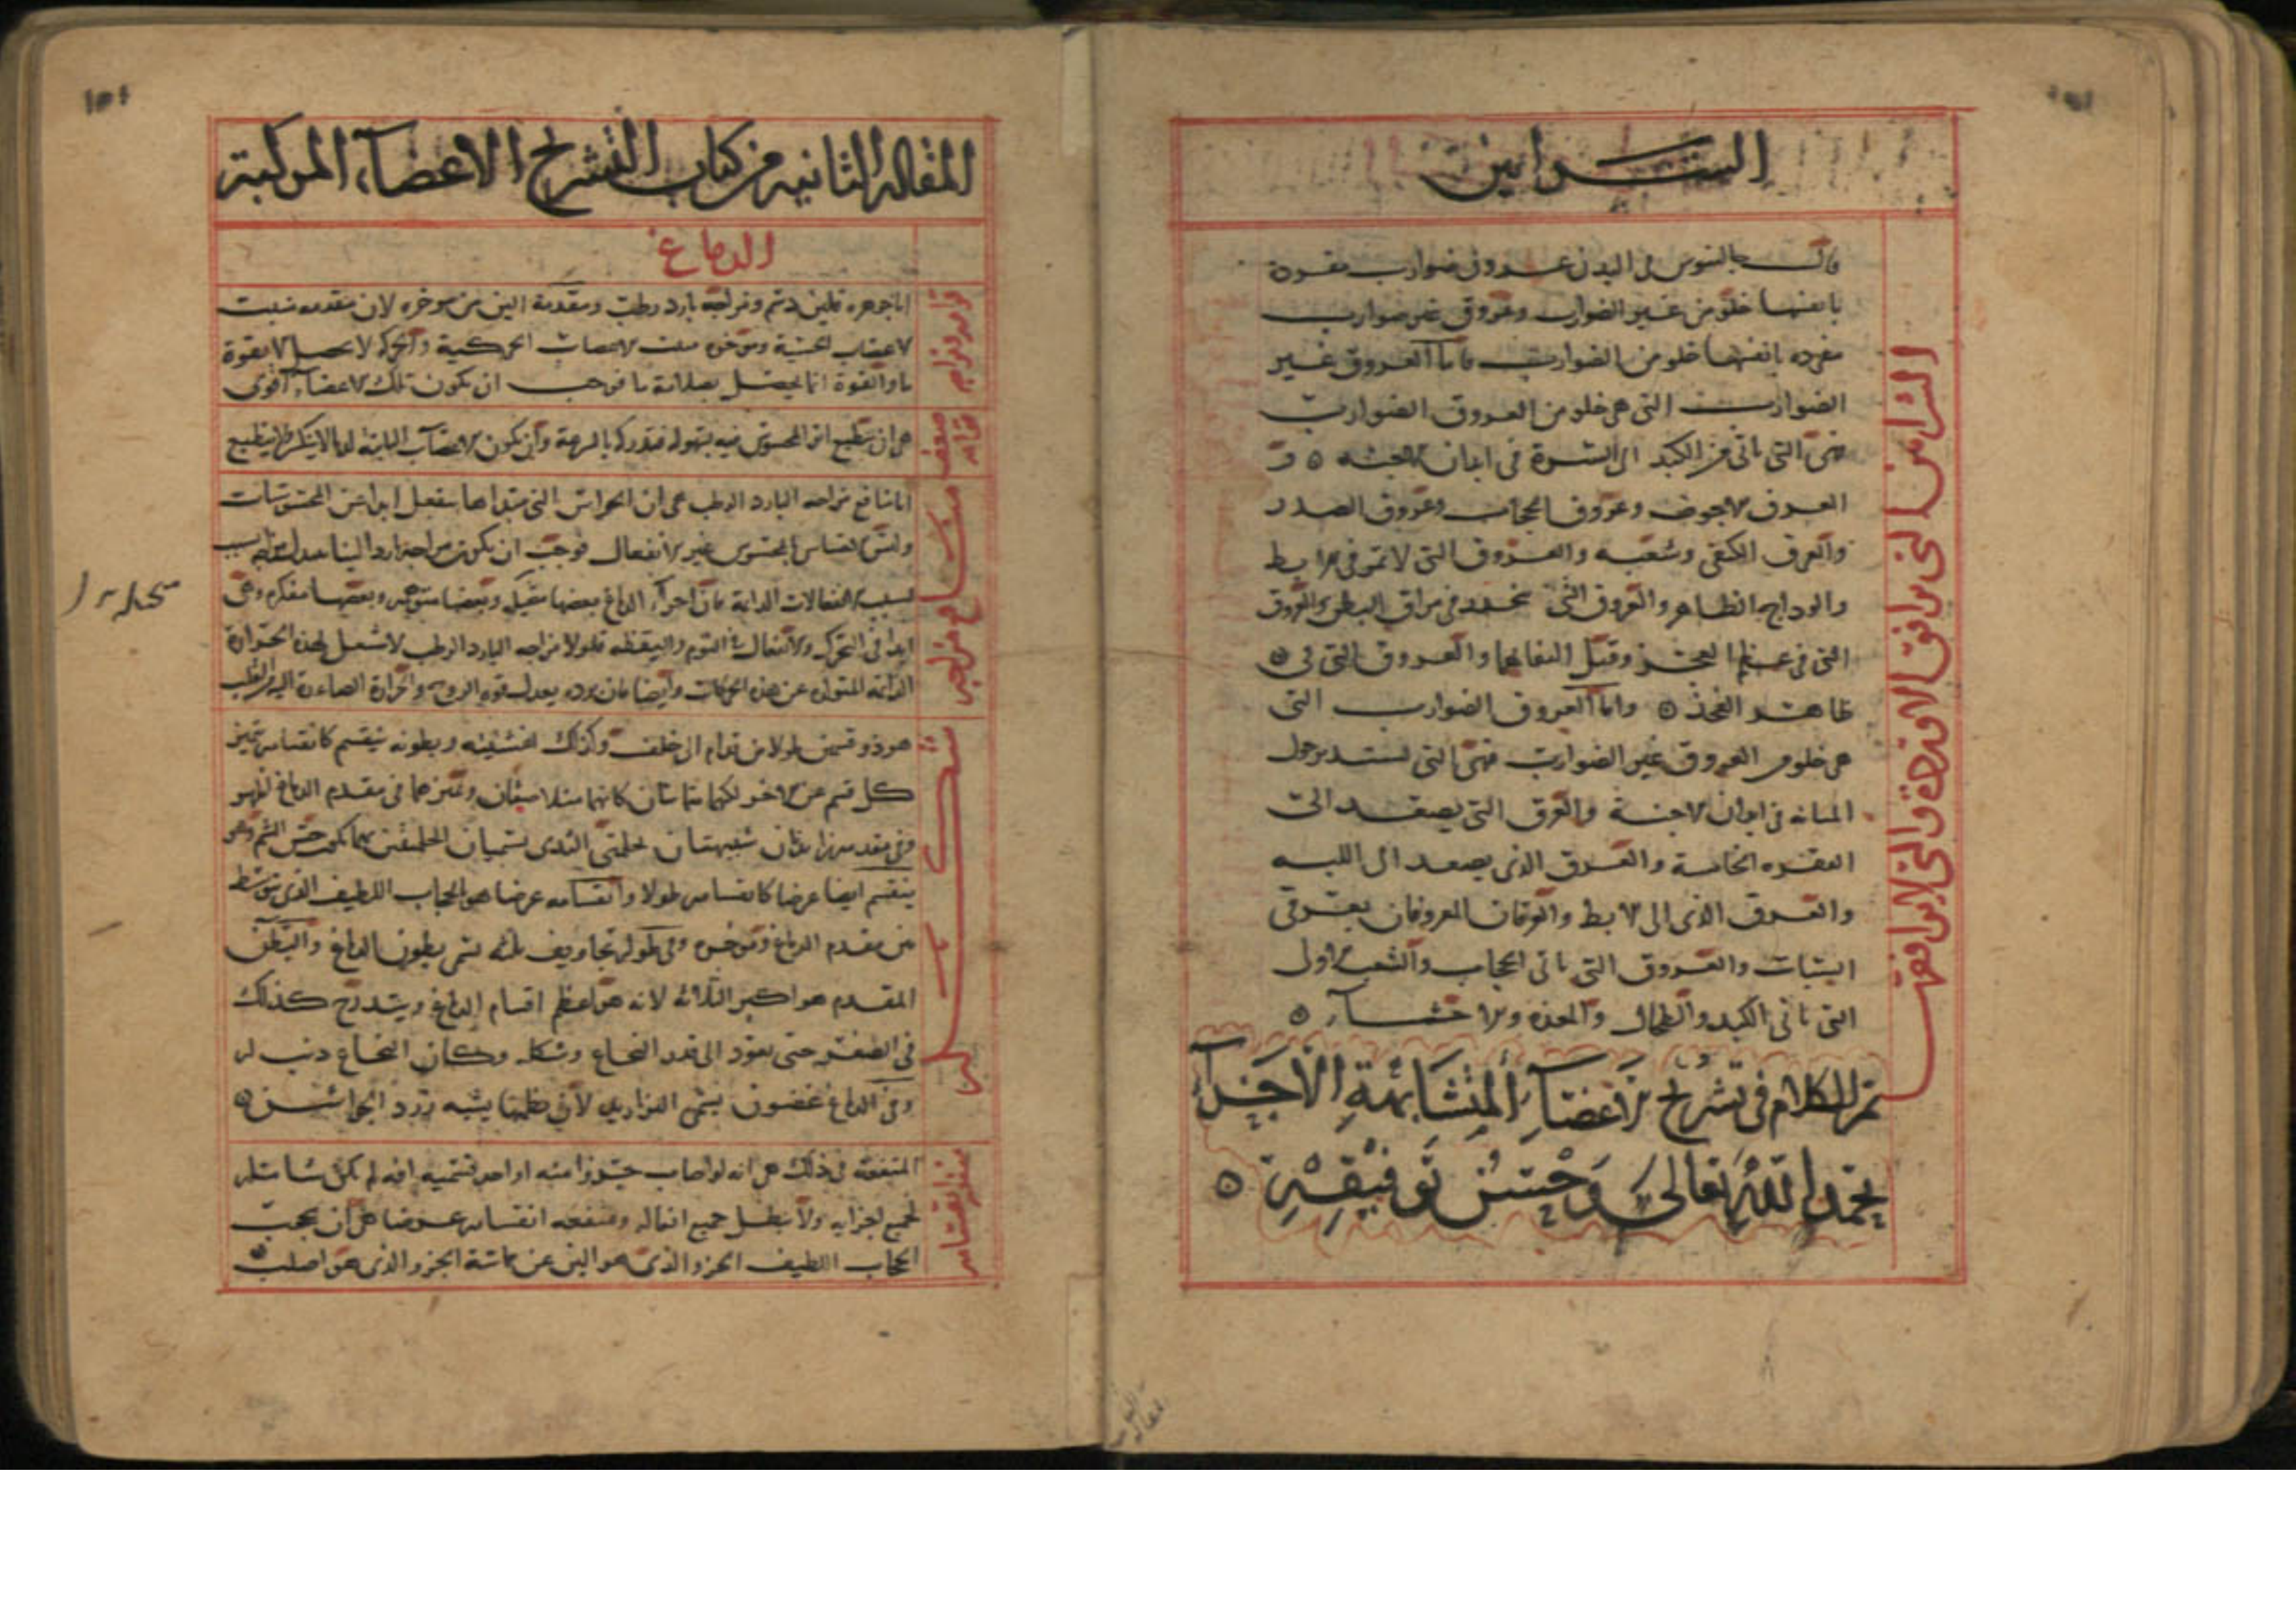 الشرايين
قال جالينوس في البدن عروق ضوارب مفردة
بانفسها خلو من غير الضوارب وعروق غير ضوارب
مفرده بانفسها خلو من الضوارب فاما العروق غير
الضوارب التي هي خلو من العروق الضوارب
فهي التي تاتي من الكبد الى السرة في ابدان الاجنه و
العرق الاجوف وعروق الحجاب وعروق الصدر
والعرق الكتفي وشعبه والعروق التي لا تمر في الابط
والوداج الظاهر والعروق التي تنحدر في مراق البطن والعروق
التي في عظم العجز وقبل التفافها والعروق التي في
ظاهر الفخذ واما العروق الضوارب التي
هي خلو من العروق غير الضوارب فهي التي تستدير حول
المثانه في ابدان الاجنة والعرق التي يصعد الى
الفقره الخامسة والعرق الذي يصعد الى اللبه
والعرق الذي الى الابط والعرقان المعروفان بعرقي
السبات والعروق التي تاتي الحجاب والشعب الاول
التي تاتي الكبد والطحال والمعده والاحشاء
الشرايين التي ترافق الاوردة والتي لا ترافقها
تم الكلام في تشريح الاعضاء المتشابهة الاجزاء
بحمد الله تعالى وحسن توفيقه
المقاله الثانيه من كتاب التشريح الاعضاء المركبة
الدماغ
اما جوهره فلين دسم ومزاجه بارد رطب ومقدمه الين من موخره لان مقدمه منبت
الاعصاب الحسية وموخره منبت الاعصاب الحركية والحركة لا تحصل الا بقوة
ما والقوة انما تحصل بصلابة ما فوجب ان تكون تلك الاعضاء اقوى
هي ان ينطبع اثر المحسوس فيه بسهوله فيدركه بالسرعة وان يكون الاعصاب النابتة
اما منافع مزاجه البارد الرطب هي ان الحواس التي مبداها تنفعل ابدا عن المحسوسات
وليس احساس المحسوس غير الانفعال فوجب ان يكون مزاجه باردا لينا
لسبب الانفعالات الدايمة فان اجزاء الدماغ بعضها مفكر وهي
ابدا في التحرك والانفعال في النوم واليقظه فلولا مزاجه البارد الرطب لاشتعل لهذه الحرارة
الدايمة المتولده عن هذه الحركات وايضا فان برده يعدل قوة الروح والحرارة الصاعدة اليه من القلب
هو ذو قسمين طولا من قدام الى خلف وكذلك اغشيته وبطونه ينقسم كانقسامه بتميز
كل قسم عن الاخر لكنهما متماسان كانهما متلاصقان وتميزهما في مقدم الدماغ اظهر
وفي مقدمه زايدتان شبيهتان بحلمتي الثدي تسميان الحلمتين بهما يكون حس الشم وهو
ينقسم ايضا عرضا كانقسامه طولا وانقسامه عرضا هو الحجاب اللطيف الذي يتوسط
من مقدم الدماغ وموخره وفي طوله تجاويف ثلثه تسمى بطون الدماغ والبطن
المقدم هو اكبر الثلاثه لانه هو اعظم اقسام الدماغ ويتدرج كذلك
في الصغر حتى يعود الى قدر النخاع وشكله وكان النخاع ذنب له
وفي الدماغ غضون تسمى التزاريد لان نظمها يشبه تزرد الجواشن
شكله
المنفعة في ذلك هي انه لو اصاب جزوا منه او احد قسميه افه لم يكن شاملة
لجميع اجزايه ولا تبطل جميع افعاله ومنفعه انقسامه عرضا هي ان يحجب
الحجاب اللطيف الجزو الذي هو الين عن مماسة الجزو الذي هو اصلب